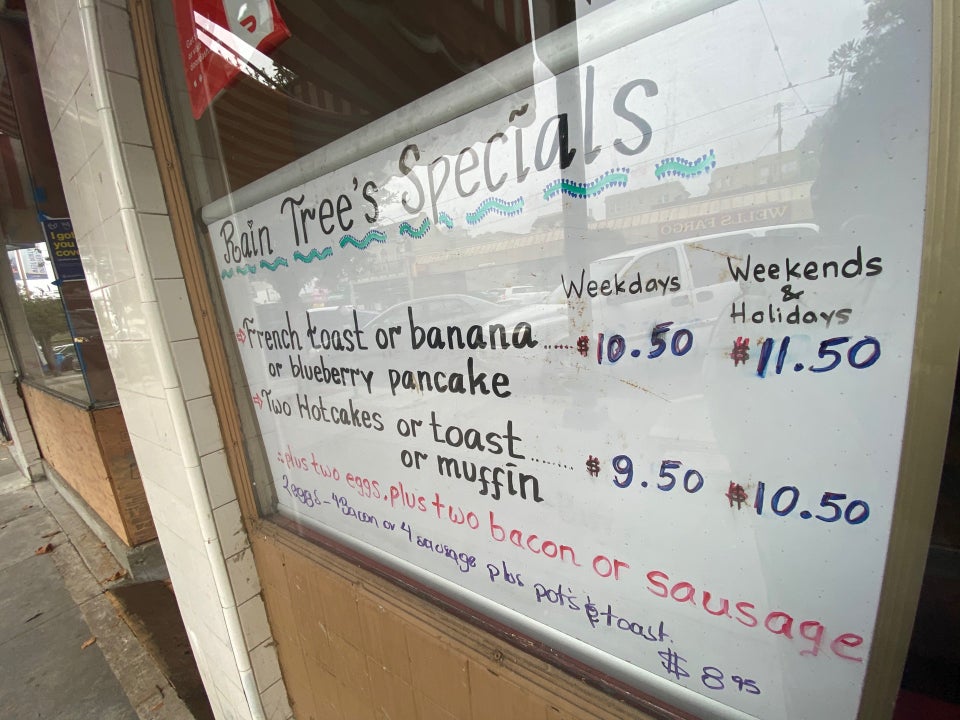 Rain Tree's Specials
Weekdays
Weekends
&
Holidays
French toast or banana ...... $10.50 $11.50
or blueberry pancake
Two Hotcakes or toast
or muffin ........ $9.50 $10.50
plus two eggs, plus two bacon or sausage
2 eggs - 4 Bacon or 4 sausage plus pot's & toast.
$8 95
WELLS FARGO
I got
you